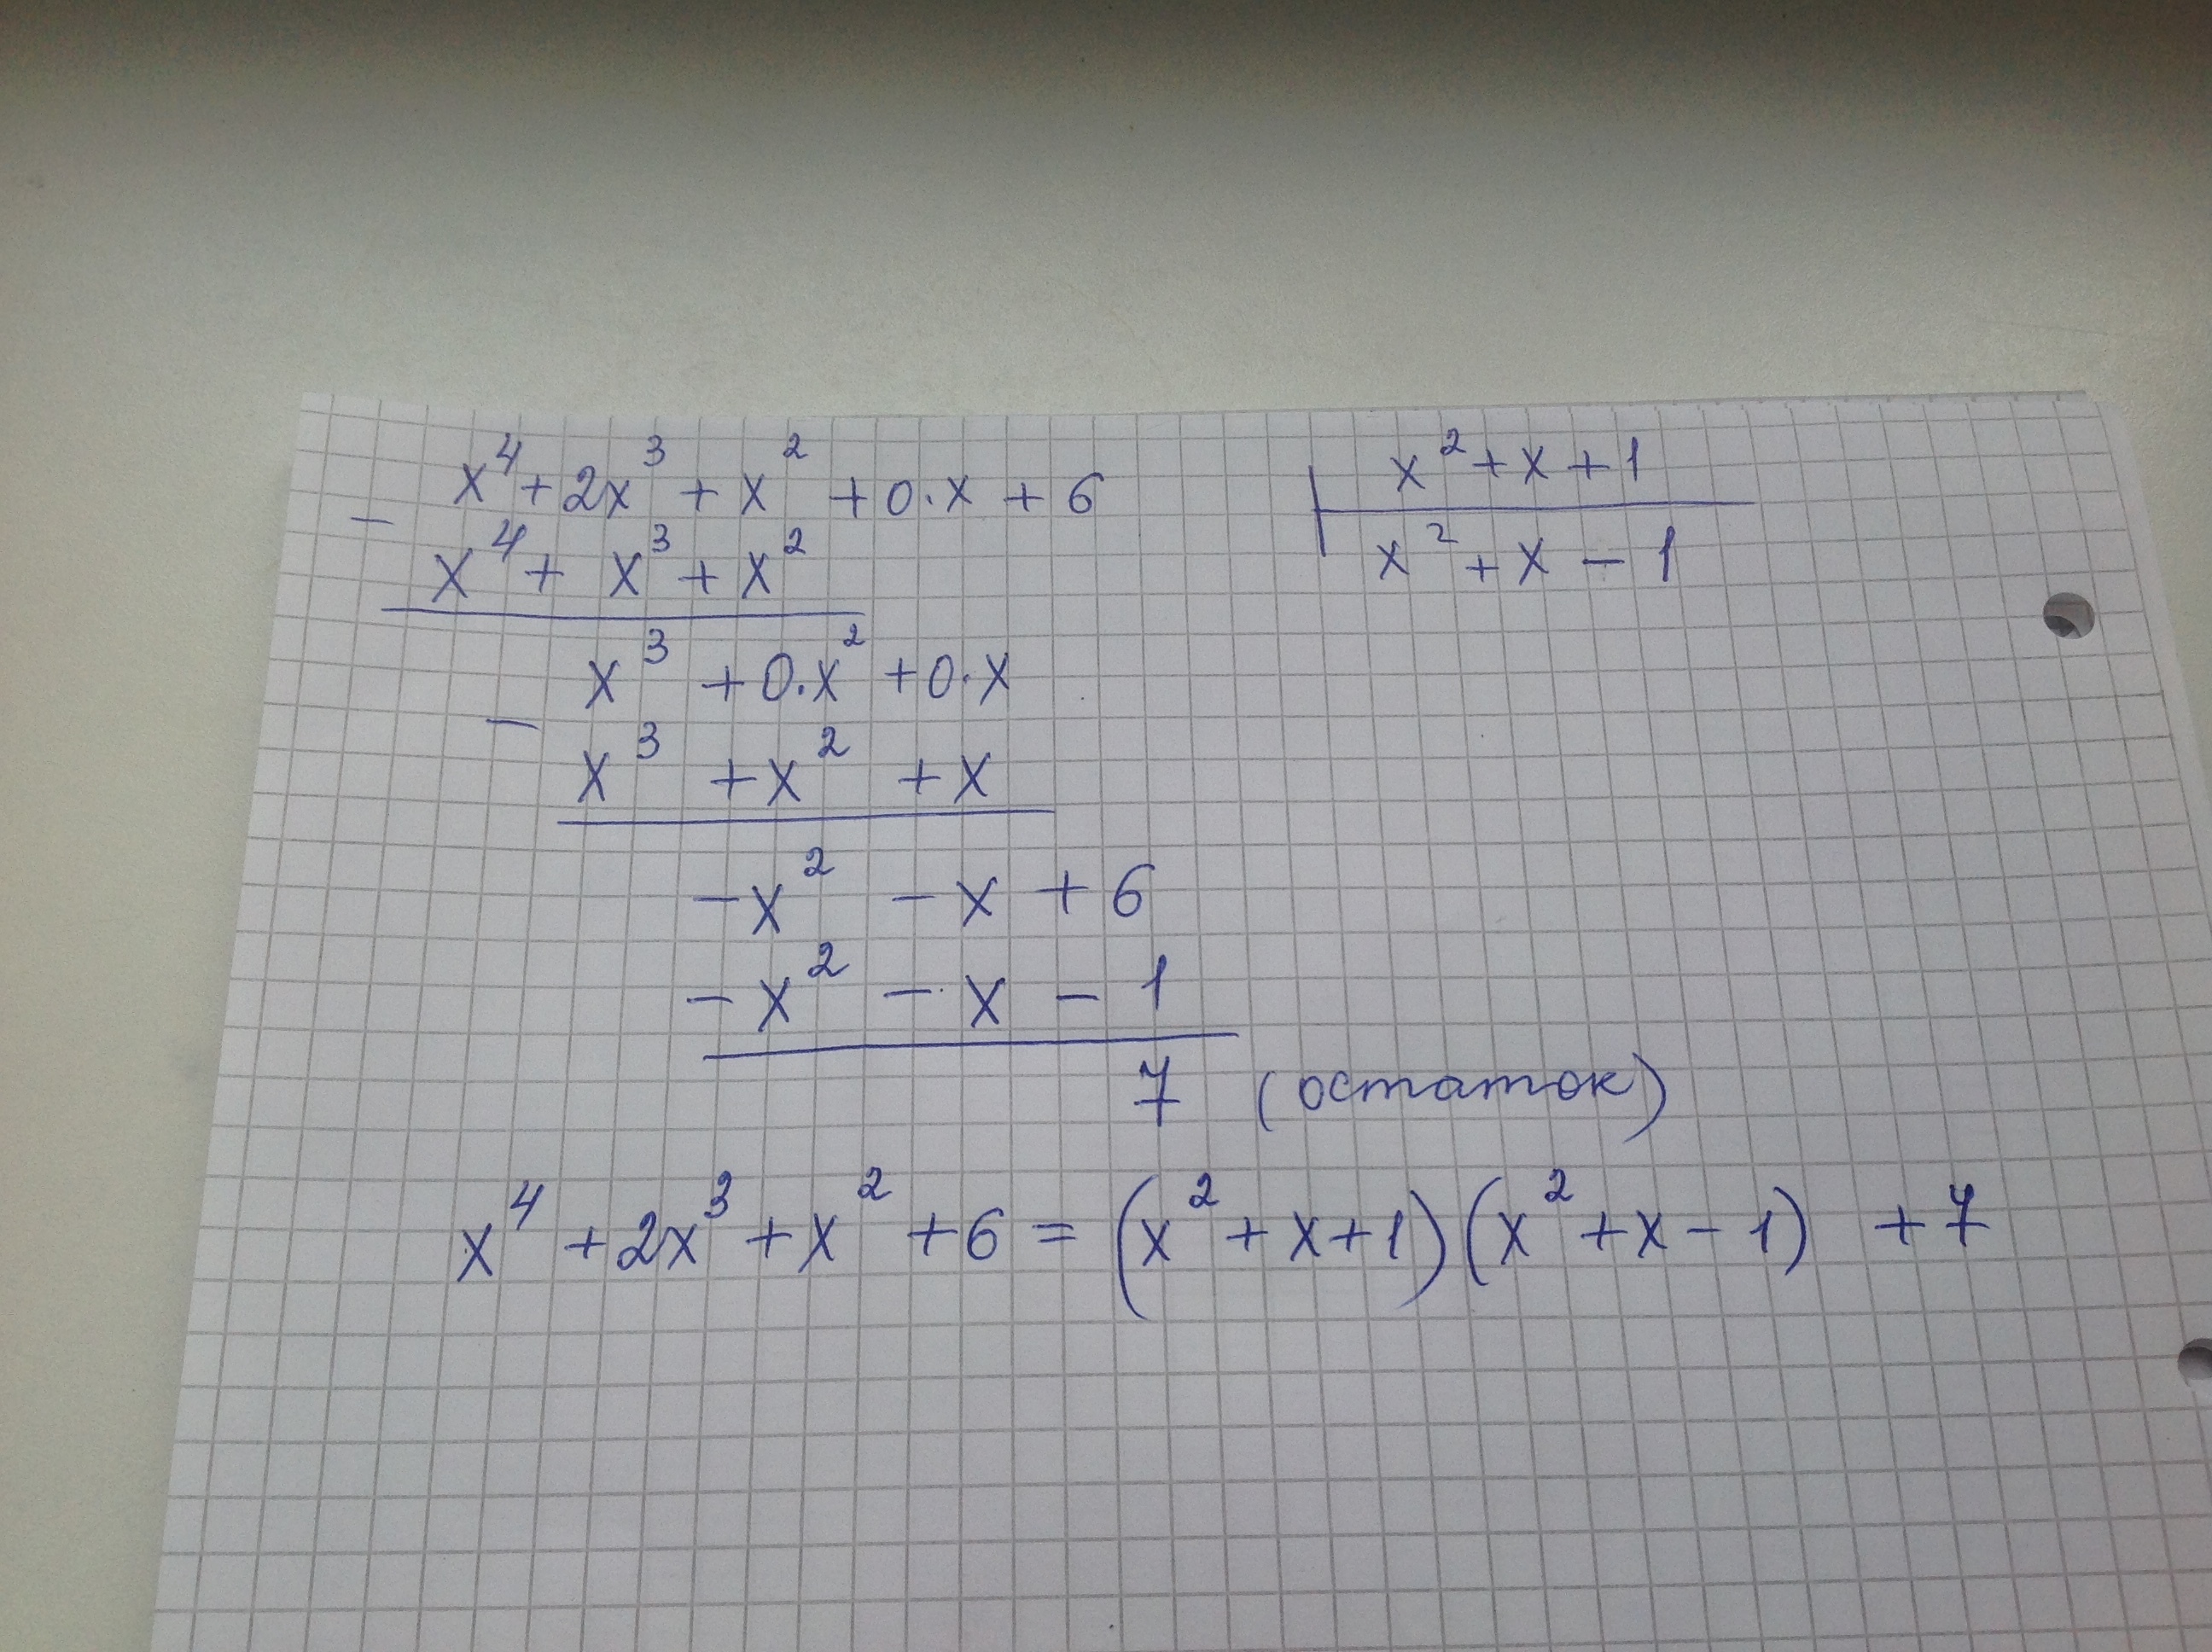 x⁴ + 2x³ + x² + 0·x + 6 | x² + x + 1
−
x⁴ + x³ + x² | x² + x − 1
x³ + 0·x² + 0·x
−
x³ + x² + x
−x² − x + 6
−x² − x − 1
7 (остаток)
x⁴ + 2x³ + x² + 6 = (x² + x + 1)(x² + x − 1) + 7